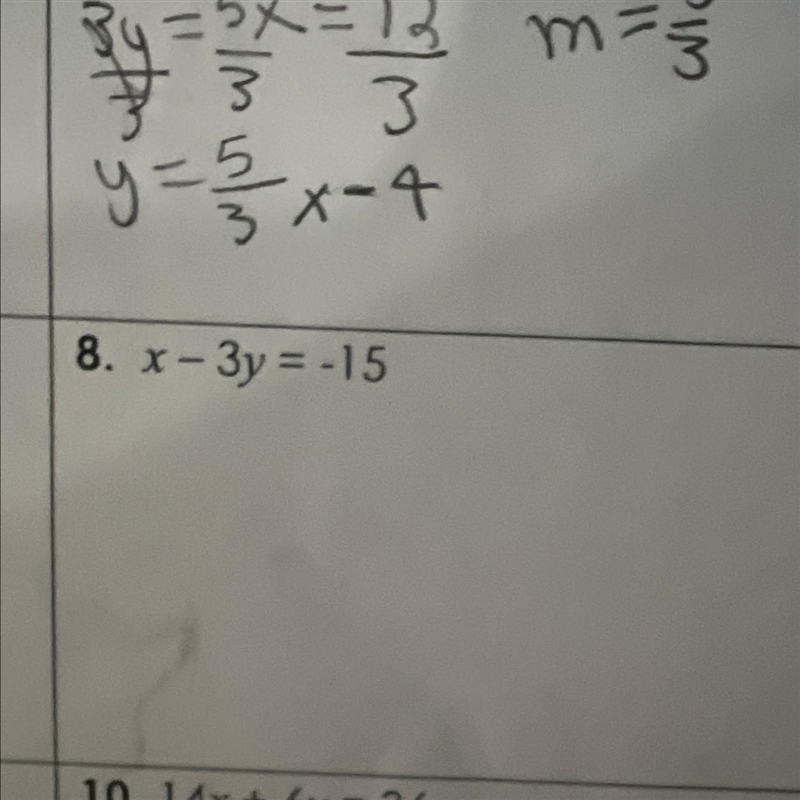 3y/3 = 5x/3 = 12/3 m = /3
y = 5/3 x - 4
8. x – 3y = -15
10. 14x +